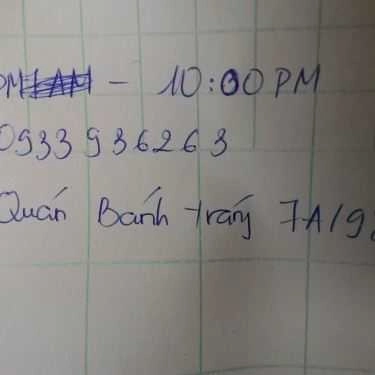 PM - 10:00 PM
0933 936263
Quán Bánh tráng 7A/9